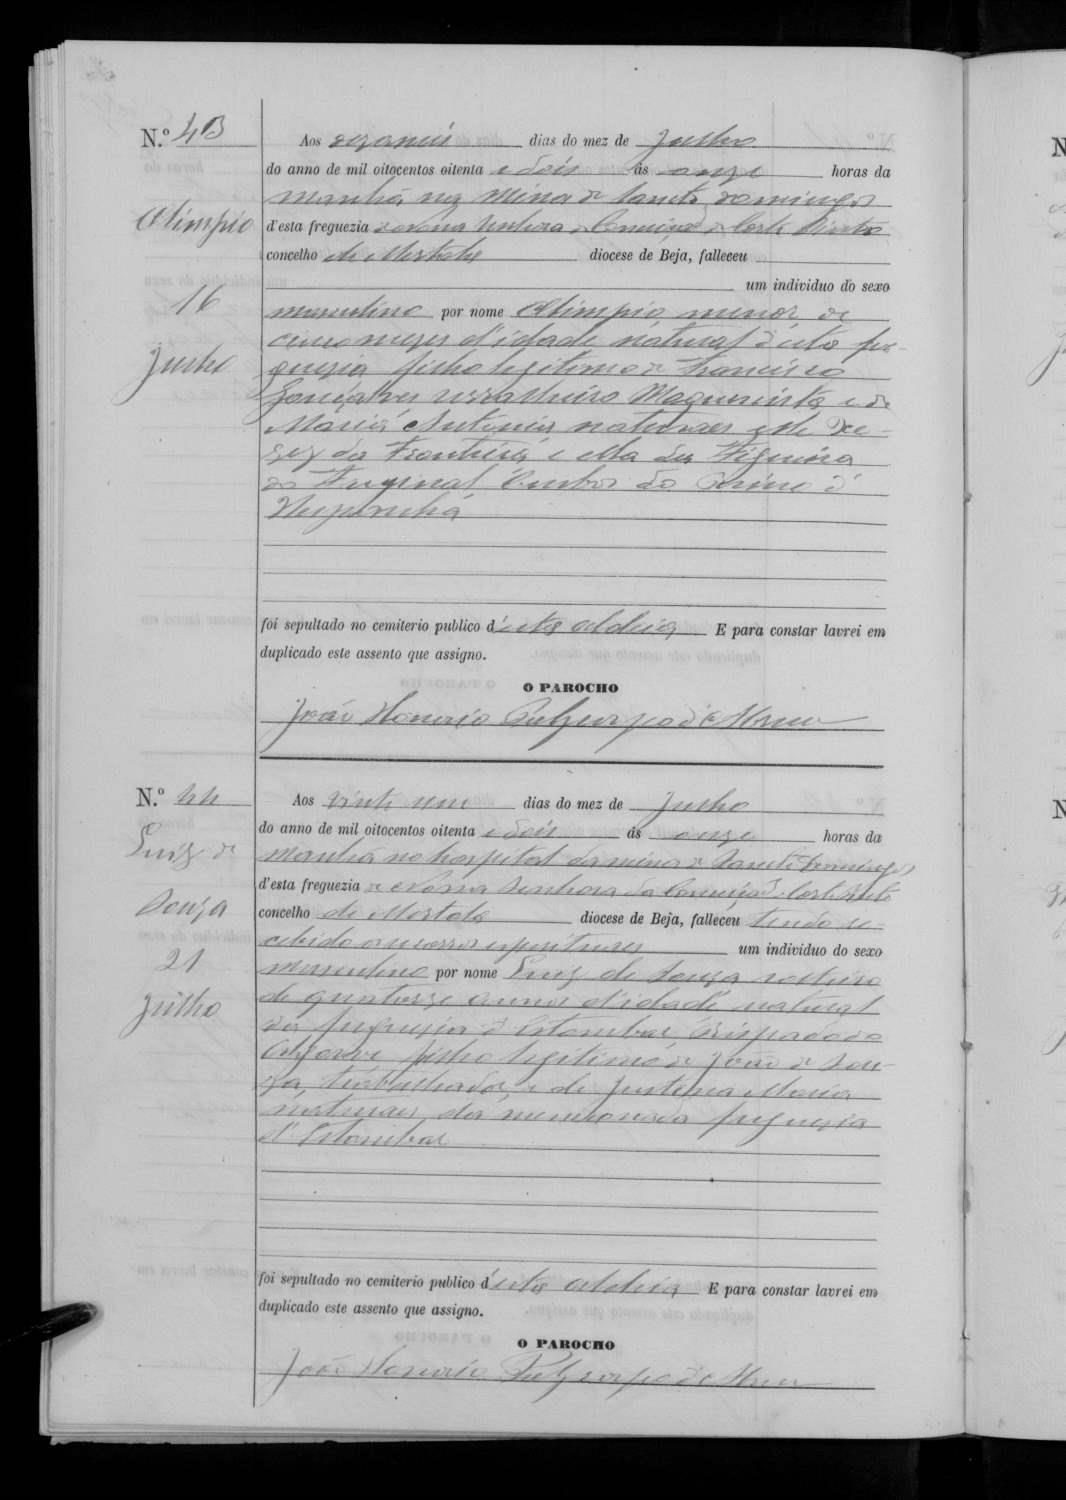 N.º 43
Aos dezaseis dias do mez de Julho
do anno de mil oitocentos oitenta e dois ás onze horas da
manhã na Mina de Sancto Domingos
Olimpio
d'esta freguezia de Nossa Senhora da Conceição de Corte Pinto
concelho de Mertola diocese de Beja, falleceu
um individuo do sexo
16
masculino por nome Olimpio menor de
cinco mezes d'idade natural d'esta fre-
Julho
guezia filho legitimo de Francisco
Gonçalves Serralheiro Maquinista e de
Maria Antonia naturaes elle de Xe-
rez da Fronteira e ella da Figueira
ambos do Reino d'
Hespanha
foi sepultado no cemiterio publico d'esta aldeia E para constar lavrei em
duplicado este assento que assigno.
O PAROCHO
João Honorio
N.º 44
Aos vinte um dias do mez de Julho
do anno de mil oitocentos oitenta e dois ás onze horas da
Luiz de
manhã no hospital da mina de Sancto Domingos
d'esta freguezia de Nossa Senhora da Conceição de Corte Pinto
Souza
concelho de Mertola diocese de Beja, falleceu tendo re-
cebido os socorros espirituaes um individuo do sexo
21
masculino por nome Luiz de Souza solteiro
de quatorze annos d'idade natural
Julho
da freguezia d'Estombar Bispado do
Algarve filho legitimo de João de Sou-
za, trabalhador, e de Justina Maria
naturaes da mencionada freguezia
d'Estombar
foi sepultado no cemiterio publico d'esta aldeia E para constar lavrei em
duplicado este assento que assigno.
O PAROCHO
João Honorio